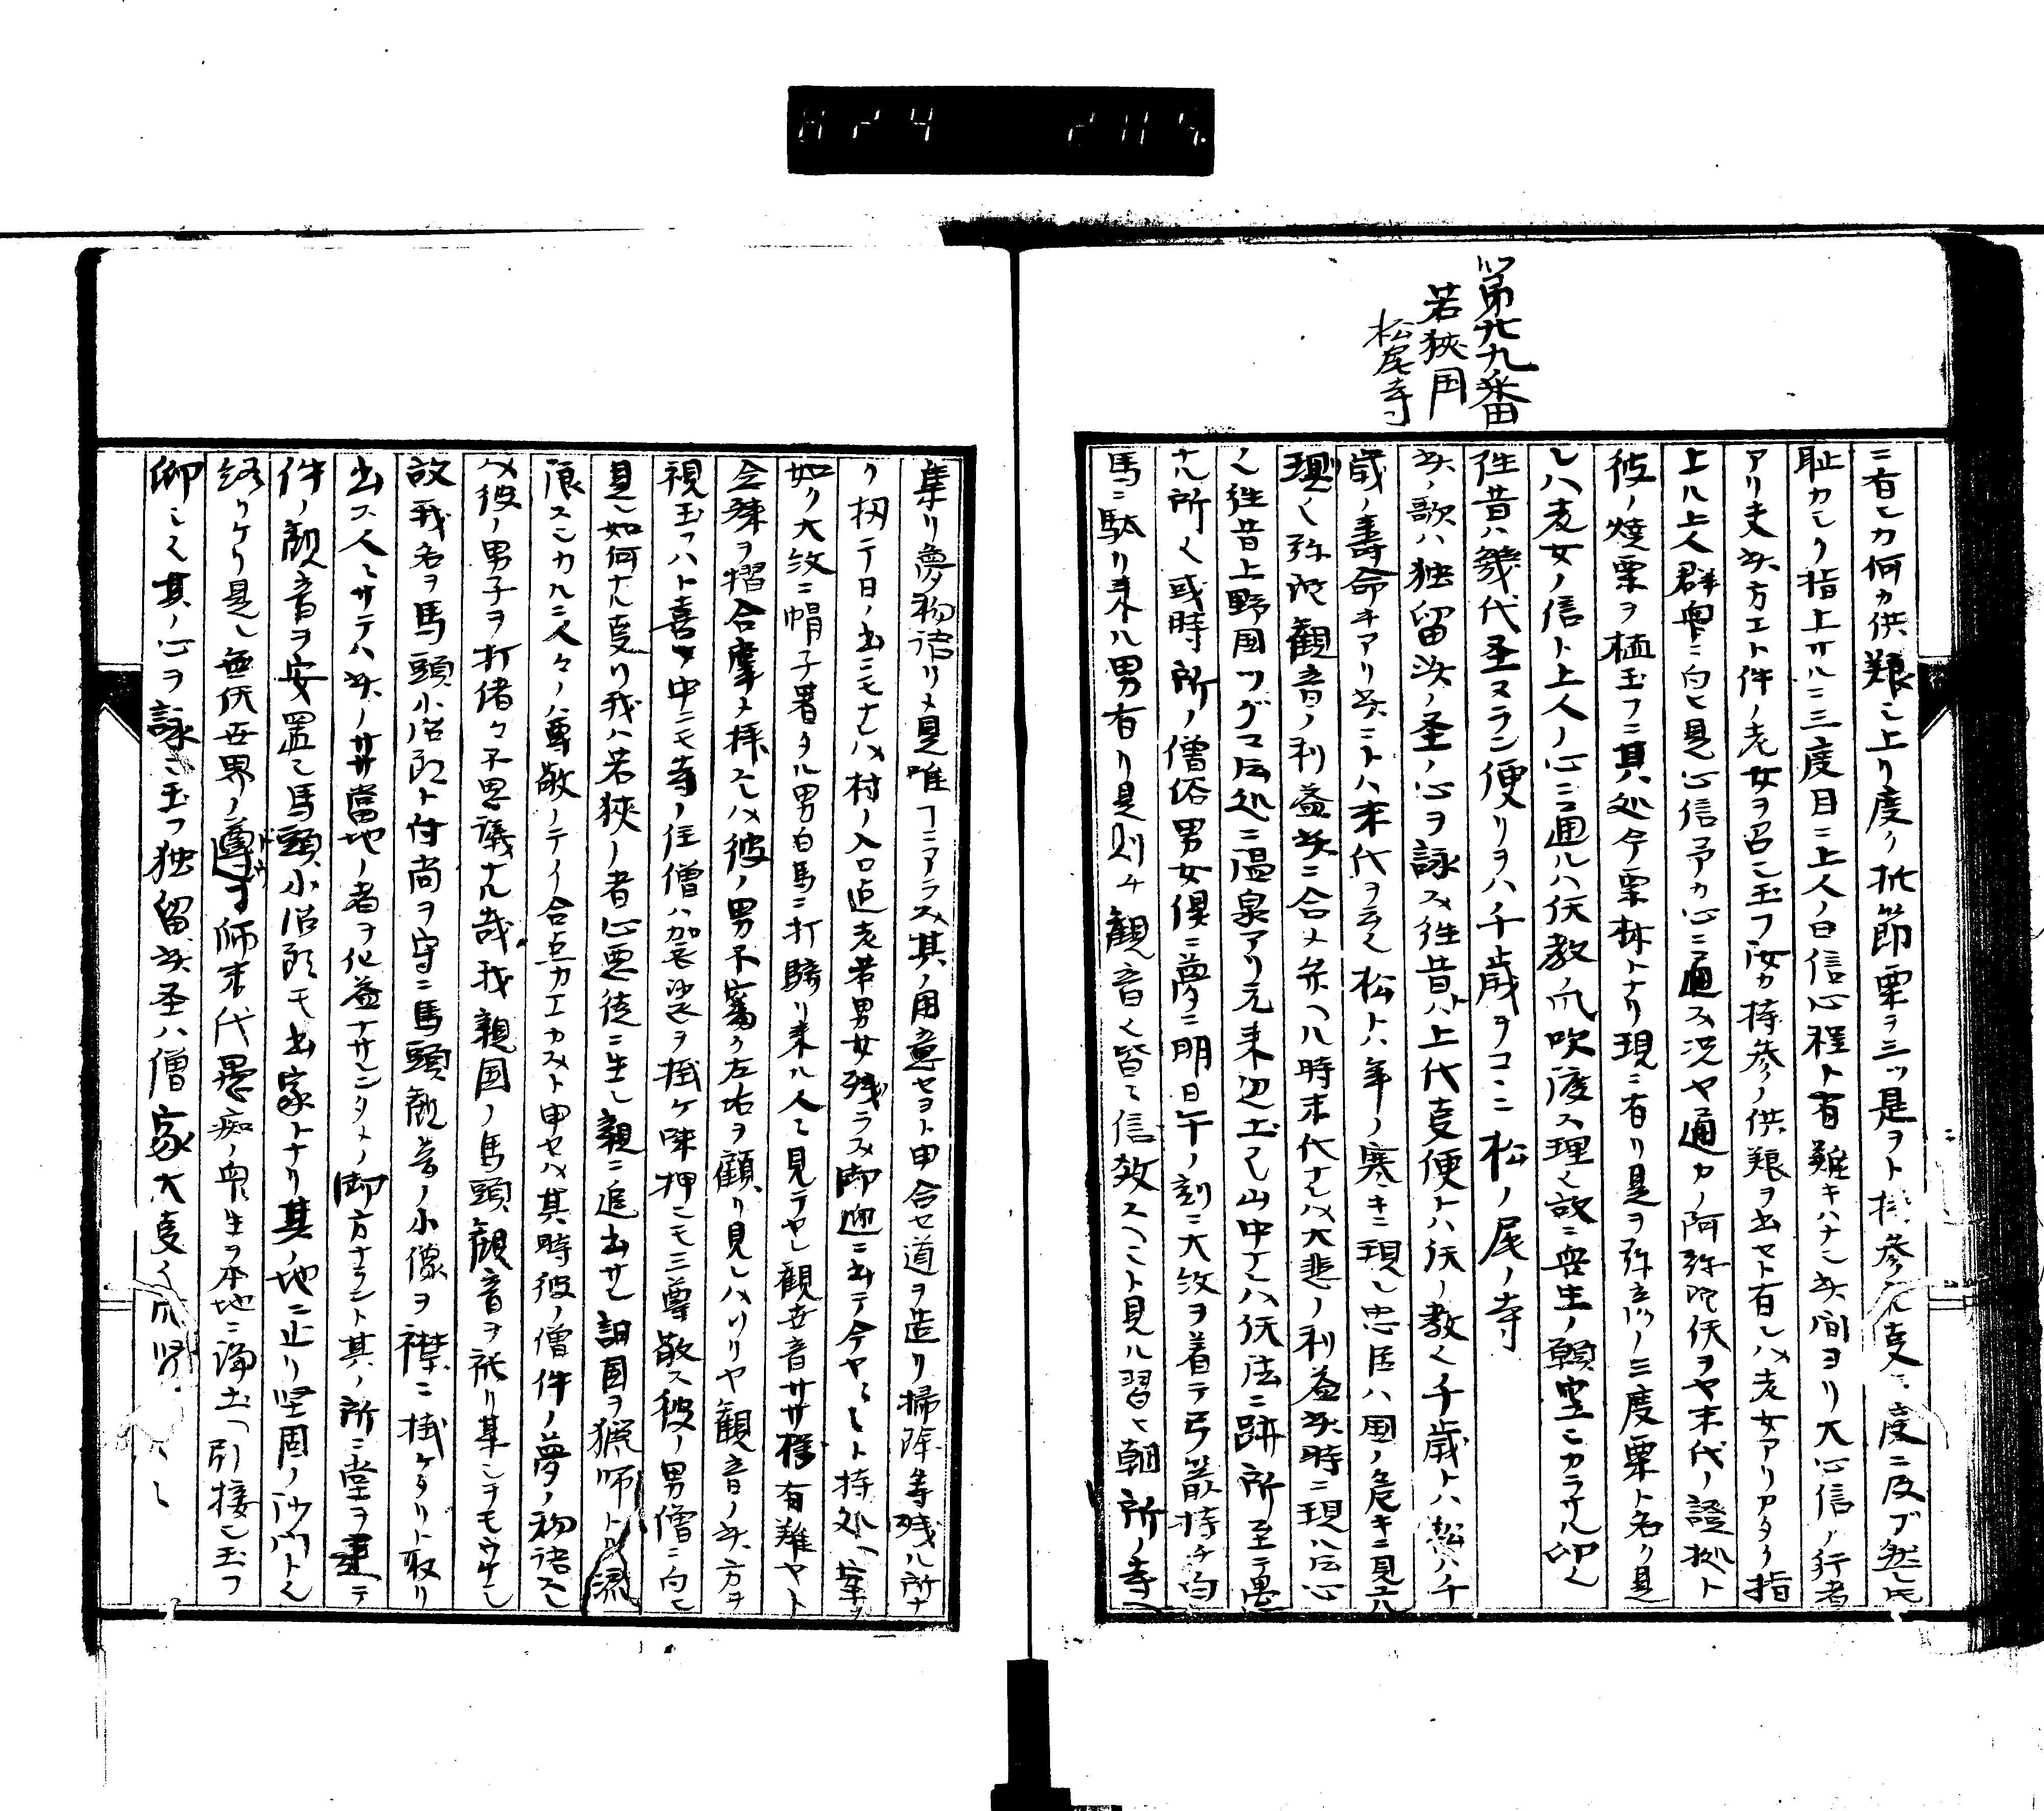 第廿九番
若狹国
松尾寺
ニ有シカ何カ供粮ニ上リ度ク折節栗ヲ三ツ是ヲト持参ル支三度ニ及ブ然トモ
恥カシク指上サル三度目ニ上人ノ曰信心程ト有難キハナシ失間ヨリ大心信ノ行者
アリ夫失方エト件ノ老女ヲ召シ玉フ汝カ持参ノ供粮ヲ出セト有レハ老女アリアタク指
上ル上人群衆ニ向ヒ是心信予カ心ニ通ス况ヤ通力ノ阿弥陀仏ヲヤ末代ノ證拠ト
彼ノ燒栗ヲ植玉フニ其処今栗林トナリ現ニ有リ是ヲ弥立ツノ三度栗ト名ク是
レハ老女ノ信ト上人ノ心ニ通ルハ仏教ノ爪吹渡ス理ヘ故ニ衆生ノ願空シカラサル印ヘ
往昔ハ幾代圣ヌラン便リヲハ千歳ヲコニ松ノ尾ノ寺
失ノ歌ハ独留失ノ圣ノ心ヲ詠ス往昔ハト上代支便トハ仏ノ教ヘ千歳トハ松ハ千
歳ノ壽命キアリ失ニトハ末代ヲ云ヘ松トハ年ノ寒キニ現レ忠臣ハ国ノ危キニ見ハ
現レ弥陀観音ノ利益失ニ合メ弁ヘル時末代ナレハ大悲ノ利益失時ニ現ハル心
ヘ往昔上野国ツグマ处ニ温泉アリ元来辺土ヘ山中ナレハ仏法ニ疎所至テ愚
ナル所ヘ或時所ノ僧俗男女倶ニ夢ニ明日午ノ刻ニ大紋ヲ着テ弓箭持チ白
馬ニ駄リ来ル男有リ是則チ観音ヘ皆ヽ信敬スヘシト見ル習ヒ朝所ノ寺ヘ
集リ夢物語リメ是唯フニアラス其ノ用意セヨト申合セ道ヲ造リ掃除等残ル所ナ
ク扨テ日ノ出ニモナレハ村ノ入口迠老若男女残ラス御迎ニ出テ今ヤヽト持処ヘ案ノ
如ク大紋ニ帽子着タル男白馬ニ打騎リ来ル人ヽ見テヤレ観世音サザ様有難ヤト
念珠ヲ摺合掌メ拝スレハ彼ノ男不審ク左右ヲ顧リ見レハリリヤ観音ノ失方ヲ
視玉フハト喜フ中ニモ寺ノ住僧ハ加裟娑ヲ掛ケ味押シモ三尊敬ス彼ノ男僧ニ向ヒ
是レ如何ナル支リ我ハ若狹ノ者心悪徒ニ生レ親ニ追出サレ詔国ヲ猟師トル流
浪スシカルニ人々ノ尊敬ノテイ合点カエカスト申セハ其時彼ノ僧件ノ夢ノ物語スレ
ハ彼ノ男子ヲ打偖々不思議ナル哉我親国ノ馬頭観音ヲ祈リ某シヲモウケシ
故我名ヲ馬頭小治郎ト付尚ヲ守ニ馬頭観音ノ小像ヲ襟ニ掛ケタリト取リ
出ス人ミサテハ失ノサザ當地ノ者ヲ化益ナサレンタメノ御方ナラント其ノ所ニ堂ヲ建テ
件ノ観音ヲ安置シ馬頭小治郎モ出家トナリ其ノ地ニ止リ堅固ノ沙門トヘ
終リケリ是レ無仏世界ノ導ヲ師末代愚痴ノ衆生ヲ本地ニ浄土ヘ引接シ玉フ
仰シヘ其ノ心ヲ詠ミ玉フ独留失圣ハ僧家大支ノ